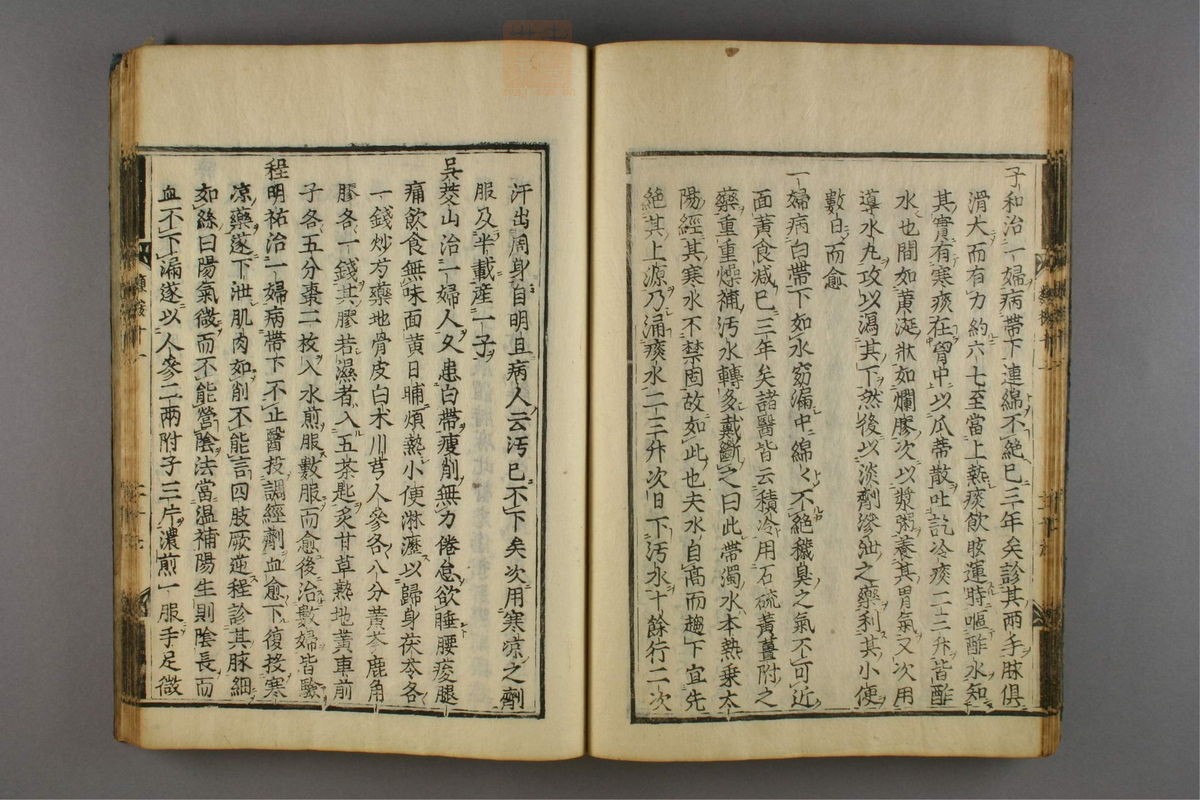 子和治一婦病帶下連綿不絕已三年矣診其兩手脉俱
滑大而有力約六七至當上熱痰飲眩運時嘔酢水知
其實有寒痰在胷中以瓜蒂散吐訖冷痰二三升皆酢
水也間如黃涎狀如爛膠次以漿粥養其胃氣又次用
導水丸攻以瀉其下然後以淡劑滲泄之藥利其小便
數日而愈
一婦病白帶下如水窈漏中綿〻不絕穢臭之氣不可近
面黃食减已三年矣諸醫皆云積冷用石硫黃薑附之
藥重重燥補汚水轉多戴斷之曰此帶濁水本熱乗太
陽經其寒水不禁固故如此也夫水自高而趨下宜先
絕其上源乃涌痰水二三升次日下汚水十餘行二次
汗出周身自明旦病人云汚已不下矣次用寒凉之劑
服及半載産一子
吳茭山治一婦人久患白帶瘦削無力倦怠欲睡腰痠腿
痛飲食無味面黄日晡煩熱小便淋瀝以歸身茯苓各
一錢炒芍藥地骨皮白术川芎人參各八分黄芩鹿角
膠各一錢其膠若濕者入五茶匙炙甘草熟地黄車前
子各五分棗二枚入水煎服數服而愈後治數婦皆驗
程明祐治一婦病帶下不止醫投調經劑血愈下復投寒
凉藥遂下泄肌肉如削不能言四肢厥逆程診其脉細
如絲曰陽氣微而不能營陰法當温補陽生則陰長而
血不下漏遂以人參二兩附子三片濃煎一服手足微
類案十一